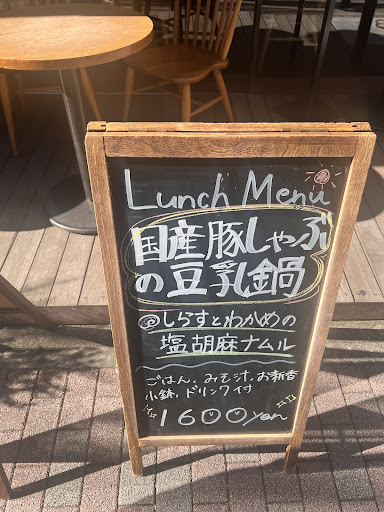 Lunch Menu
国産豚しゃぶ
の豆乳鍋
@しらすとわかめの
塩胡麻ナムル
ごはん、みそ汁、お新香
小鉢、ドリンク付
1600yen